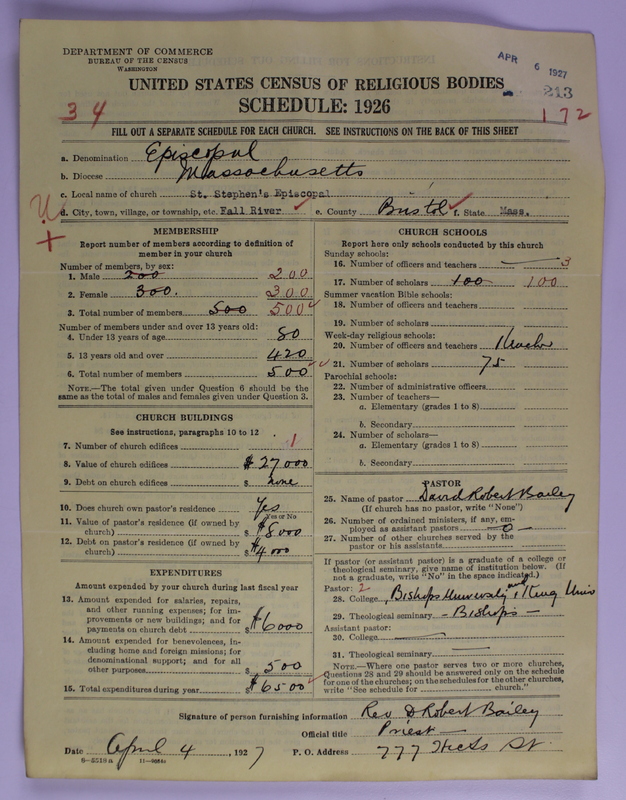 DEPARTMENT OF COMMERCE
BUREAU OF THE CENSUS
WASHINGTON
APR 6 1927
UNITED STATES CENSUS OF RELIGIOUS BODIES
213
SCHEDULE: 1926
34
172
FILL OUT A SEPARATE SCHEDULE FOR EACH CHURCH. SEE INSTRUCTIONS ON THE BACK OF THIS SHEET
a. Denomination Episcopal
b. Diocese Massachusetts
c. Local name of church St. Stephen's Episcopal
d. City, town, village, or township, etc. Fall River e. County Bristol f. State Mass.
MEMBERSHIP
Report number of members according to definition of
member in your church
Number of members, by sex:
1. Male 200 200
2. Female 300. 300
3. Total number of members 500 500
Number of members under and over 13 years old:
4. Under 13 years of age 80
5. 13 years old and over 420
6. Total number of members 500
NOTE.—The total given under Question 6 should be the
same as the total of males and females given under Question 3.
CHURCH BUILDINGS
See instructions, paragraphs 10 to 12
7. Number of church edifices 1
8. Value of church edifices $27000
9. Debt on church edifices $ none
10. Does church own pastor's residence? Yes
Yes or No
11. Value of pastor's residence (if owned by
church) $8000
12. Debt on pastor's residence (if owned by
church) $4000
EXPENDITURES
Amount expended by your church during last fiscal year
13. Amount expended for salaries, repairs,
and other running expenses; for im-
provements or new buildings; and for
payments on church debt $6000
14. Amount expended for benevolences, in-
cluding home and foreign missions; for
denominational support; and for all
other purposes $ 500
15. Total expenditures during year $6500
CHURCH SCHOOLS
Report here only schools conducted by this church
Sunday schools:
16. Number of officers and teachers 3
17. Number of scholars 100 100
Summer vacation Bible schools:
18. Number of officers and teachers
19. Number of scholars
Week-day religious schools:
20. Number of officers and teachers 1
21. Number of scholars 75
Parochial schools:
22. Number of administrative officers
23. Number of teachers—
a. Elementary (grades 1 to 8)
b. Secondary
24. Number of scholars—
a. Elementary (grades 1 to 8)
b. Secondary
PASTOR
25. Name of pastor David Robert Bailey
(If church has no pastor, write "None")
26. Number of ordained ministers, if any, em-
ployed as assistant pastors —0—
27. Number of other churches served by the
pastor or his assistants
If pastor (or assistant pastor) is a graduate of a college or
theological seminary, give name of institution below. (If
not a graduate, write "No" in the space indicated.)
Pastor: 2
28. College Bishops University and King Univ
29. Theological seminary — Bishops —
Assistant pastor:
30. College
31. Theological seminary
NOTE.—Where one pastor serves two or more churches,
Questions 28 and 29 should be answered only on the schedule
for one of the churches; on the schedules for the other churches,
write "See schedule for church."
Signature of person furnishing information Rev D Robert Bailey
Official title Priest
Date April 4, 1927 P. O. Address 777 St.
6-5518a